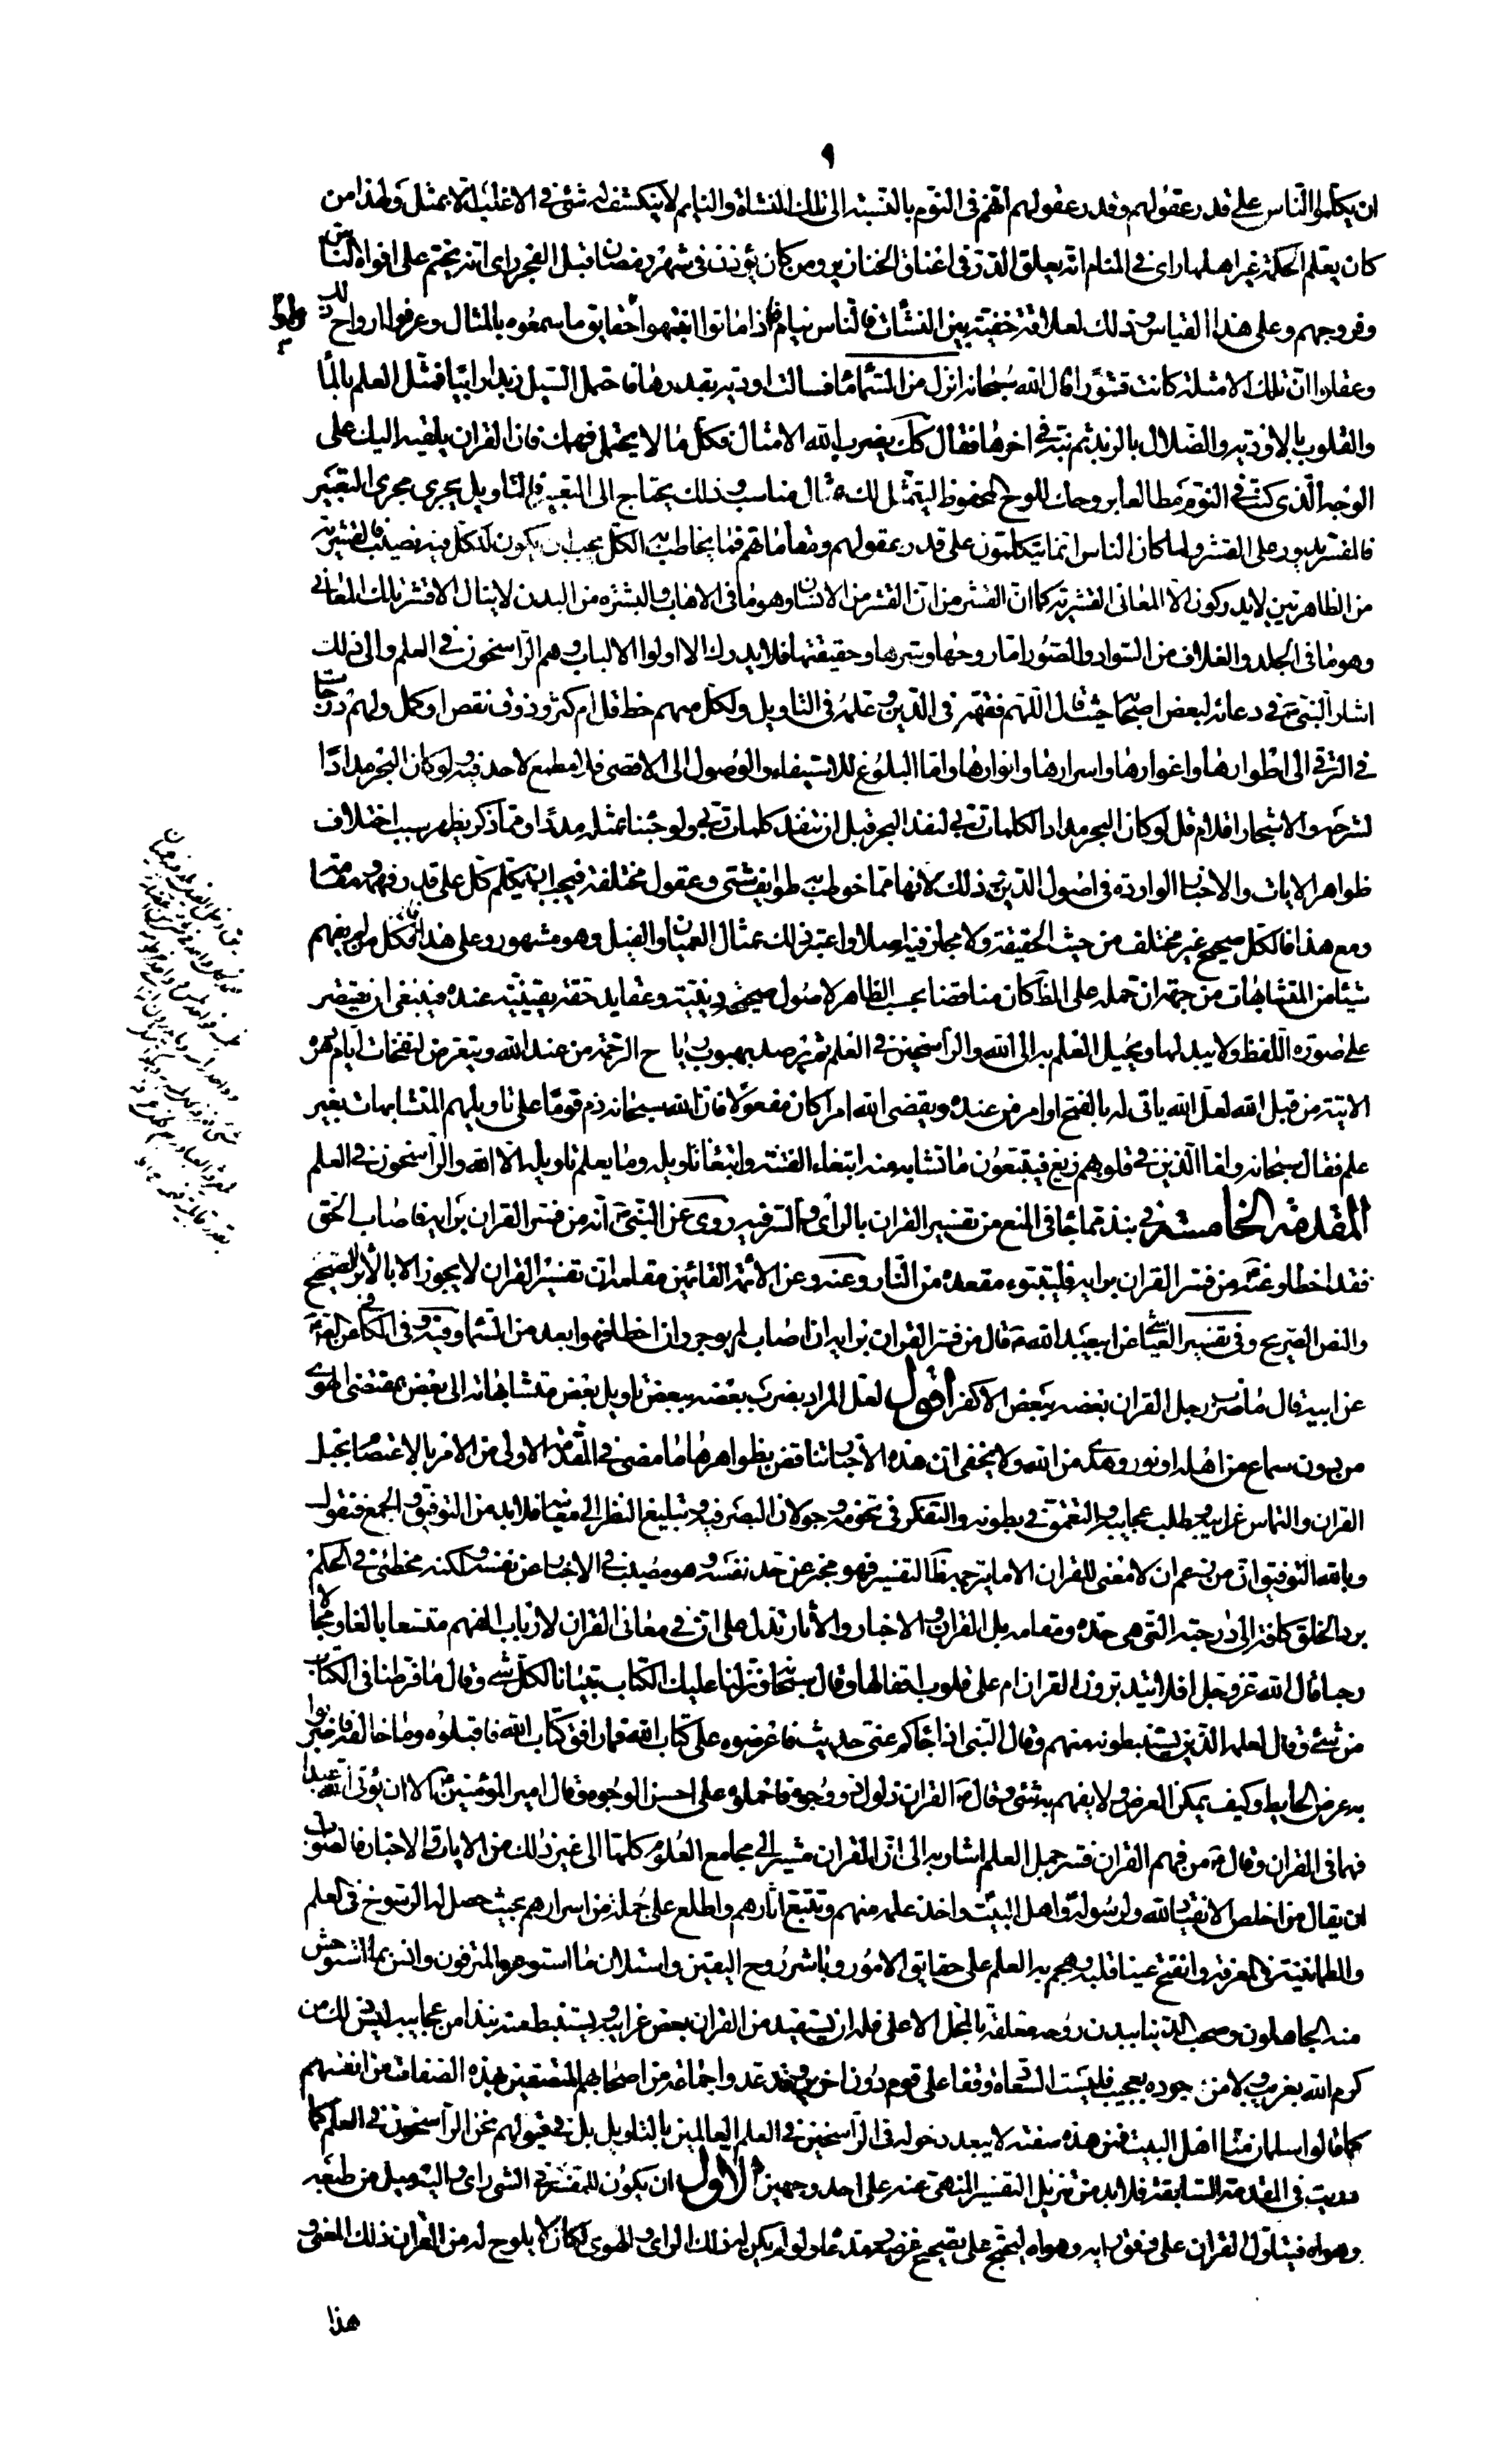 ٩
ان يكلموا الناس على قدر عقولهم وقدر عقولهم انهم في النوم بالنسبة الى تلك النشاة والنايم لا ينكشف له شئ في الاغلب الا بمثل ولهذا من
كان يعلم الحكمة غير اهلها راى في المنام انه يعلق الدر في اعناق الخنازير ومن كان يؤذن في شهر رمضان قبل الفجر راى انه يختم على افواه الناس
وفروجهم وعلى هذا القياس وذلك لعلاقة خفية بين النشئات فالناس نيام فاذا ماتوا انتبهوا حقايق ما سمعوه بالمثال وعرفوا ارواح ذلك
وعقلوا ان تلك الامثلة كانت قشورا قال الله سبحانه انزل من السماء ماء فسالت اودية بقدرها فاحتمل السيل زبدا رابيا فمثل العلم بالماء
والقلوب بالاودية والضلال بالزبد ثم نبه في اخرها فقال كذلك يضرب الله الامثال فكل ما لا يحتمل فهمك فان القران يلقيه اليك على
الوجه الذي كنت في النوم مطالعا بروحك اللوح المحفوظ ليتمثل لك مثال مناسب وذلك يحتاج الى التعبير فالتاويل يجري مجرى التعبير
فالمفسر يدور على القشر ولما كان الناس انما يتكلمون على قدر عقولهم ومقاماتهم فما يخاطب به الكل يجب ان يكون للكل فيه نصيب فالقشرية
من الظاهريين لا يدركون الا المعاني القشرية كما ان القشر من الانسان وهو ما في الاهاب والبشرة من البدن لا ينال الا قشر تلك المعاني
وهو ما في الجلد والغلاف من السواد والصور اما روحها وسرها وحقيقتها فلا يدرك الا اولوا الالباب وهم الراسخون في العلم والى ذلك
اشار النبي ص في دعائه لبعض اصحابه حيث قال اللهم فقهه في الدين وعلمه التاويل ولكل منهم حظ قل ام كثر وذوق نقص او كمل ولهم درجات
في الترقي الى اطوارها واغوارها واسرارها وانوارها واما البلوغ للاستيفاء والوصول الى الاقصى فلا مطمع لاحد فيه ولو كان البحر مدادا
لشرحه والاشجار اقلام قل لو كان البحر مدادا لكلمات ربي لنفد البحر قبل ان تنفد كلمات ربي ولو جئنا بمثله مددا ومما ذكر يظهر سبب اختلاف
ظواهر الايات والاخبار الواردة في اصول الدين وذلك لانها مما خوطب به طوايف شتى وعقول مختلفة فيجب ان يكلم كل على قدر فهمه ومقامه
ومع هذا فالكل صحيح غير مختلف من حيث الحقيقة ولا مجاز فيه اصلا واعتبر ذلك بمثال العميان والفيل وهو مشهور وعلى هذا فكل من لم يفهم
شيئا من المتشابهات من جهة ان حمله على الظاهر كان مناقضا بحسب الظاهر لاصول صحيحة دينية وعقايد حقة يقينية عنده فينبغي ان يقتصر
على صورة اللفظ ولا يبدلها ويحيل العلم به الى الله والراسخين في العلم ثم يترصد لهبوب رياح الرحمة من عند الله ويتعرض لنفحات ايام دهره
الاتية من قبل الله لعل الله ياتي له بالفتح او امر من عنده ويقضي الله امرا كان مفعولا فان الله سبحانه ذم قوما على تاويلهم المتشابهات بغير
علم فقال سبحانه واما الذين في قلوبهم زيغ فيتبعون ما تشابه منه ابتغاء الفتنة وابتغاء تاويله وما يعلم تاويله الا الله والراسخون في العلم
المقدمة الخامسة في نبذ مما جاء في المنع من تفسير القران بالراي والسر فيه روي عن النبي ص انه من فسر القران برايه فاصاب الحق
فقد اخطا وعنه من فسر القران برايه فليتبوء مقعده من النار وعنه وعن الائمة القائمين مقامه ان تفسير القران لا يجوز الا بالاثر الصحيح
والنص الصريح وفي تفسير العياشي عن ابي عبد الله ع قال من فسر القران برايه ان اصاب لم يوجر وان اخطا فهو ابعد من السماء وفيه وفي الكافي عن الصادق
عن ابيه قال ما ضرب رجل القران بعضه ببعض الا كفر اقول لعل المراد بضرب بعضه ببعض تاويل بعض متشابهاته الى بعض بمقتضى الهوى
من دون سماع من اهله او نور وهدى من الله ولا يخفى ان هذه الاخبار تناقض بظواهرها ما مضى في المقدمة الاولى من الامر بالاعتصام بحبل
القران والتماس غرايبه وطلب عجايبه والتعمق في بطونه والتفكر في تخومه وجولان البصر فيه وتبليغ النظر الى معانيه فلابد من التوفيق والجمع فنقول
وبالله التوفيق ان من زعم ان لا معنى للقران الا ما يترجمه ظاهر التفسير فهو مخبر عن حد نفسه وهو مصيب في الاخبار عن نفسه ولكنه مخطئ في الحكم
برد الخلق كافة الى درجته التي هي حده ومقامه بل القران والاخبار والاثار تدل على ان في معاني القران لارباب الفهم متسعا بالغا ومجالا
رحبا قال الله عز وجل افلا يتدبرون القران ام على قلوب اقفالها وقال سبحانه ونزلنا عليك الكتاب تبيانا لكل شئ وقال ما فرطنا في الكتاب
من شئ وقال لعلمه الذين يستنبطونه منهم وقال النبي اذا جاءكم عني حديث فاعرضوه على كتاب الله فما وافق كتاب الله فاقبلوه وما خالفه فاضربوا
به عرض الحايط وكيف يمكن العرض ولا يفهم به شئ وقال ص القران ذلول ذو وجوه فاحملوه على احسن الوجوه وقال امير المؤمنين ع الا ان يؤتي الله عبدا
فهما في القران وقال ع من فهم القران فسر جمل العلم اشار به الى ان القران مشير الى مجامع العلوم كلها الى غير ذلك من الايات والاخبار فالصواب
ان يقال من اخلص الانقياد لله ولرسوله واهل البيت واخذ علمه منهم وتتبع اثارهم واطلع على جملة من اسرارهم بحيث حصل له الرسوخ في العلم
والطمانينة في المعرفة وانفتح عينا قلبه وهجم به العلم على حقايق الامور وباشر روح اليقين واستلان ما استوعره المترفون وانس بما استوحش
منه الجاهلون وصحب الدنيا ببدن روحه معلقة بالمحل الاعلى فله ان يستفيد من القران بعض غرايبه ويستنبط منه نبذا من عجايبه ليس ذلك من
كرم الله بغريب ولا من جوده بعجيب فليست السعادة وقفا على قوم دون اخرين وقد عدوا جماعة من اصحابهم المتصفين بهذه الصفات من انفسهم
كما قالوا سلمان منا اهل البيت فمن هذه صفته لا يبعد دخوله في الراسخين في العلم العالمين بالتاويل بل في قولهم نحن الراسخون في العلم كما
دريت في المقدمة السابقة فلابد من تنزيل التفسير المنهي عنه على احد وجهين الاول ان يكون للمفسر في الشئ راي واليه ميل من طبعه
وهواه فيتاول القران على وفق رايه وهواه ليحتج على تصحيح غرضه ومدعاه ولو لم يكن له ذلك الراي والهوى لكان لا يلوح له من القران ذلك المعنى و
هذا